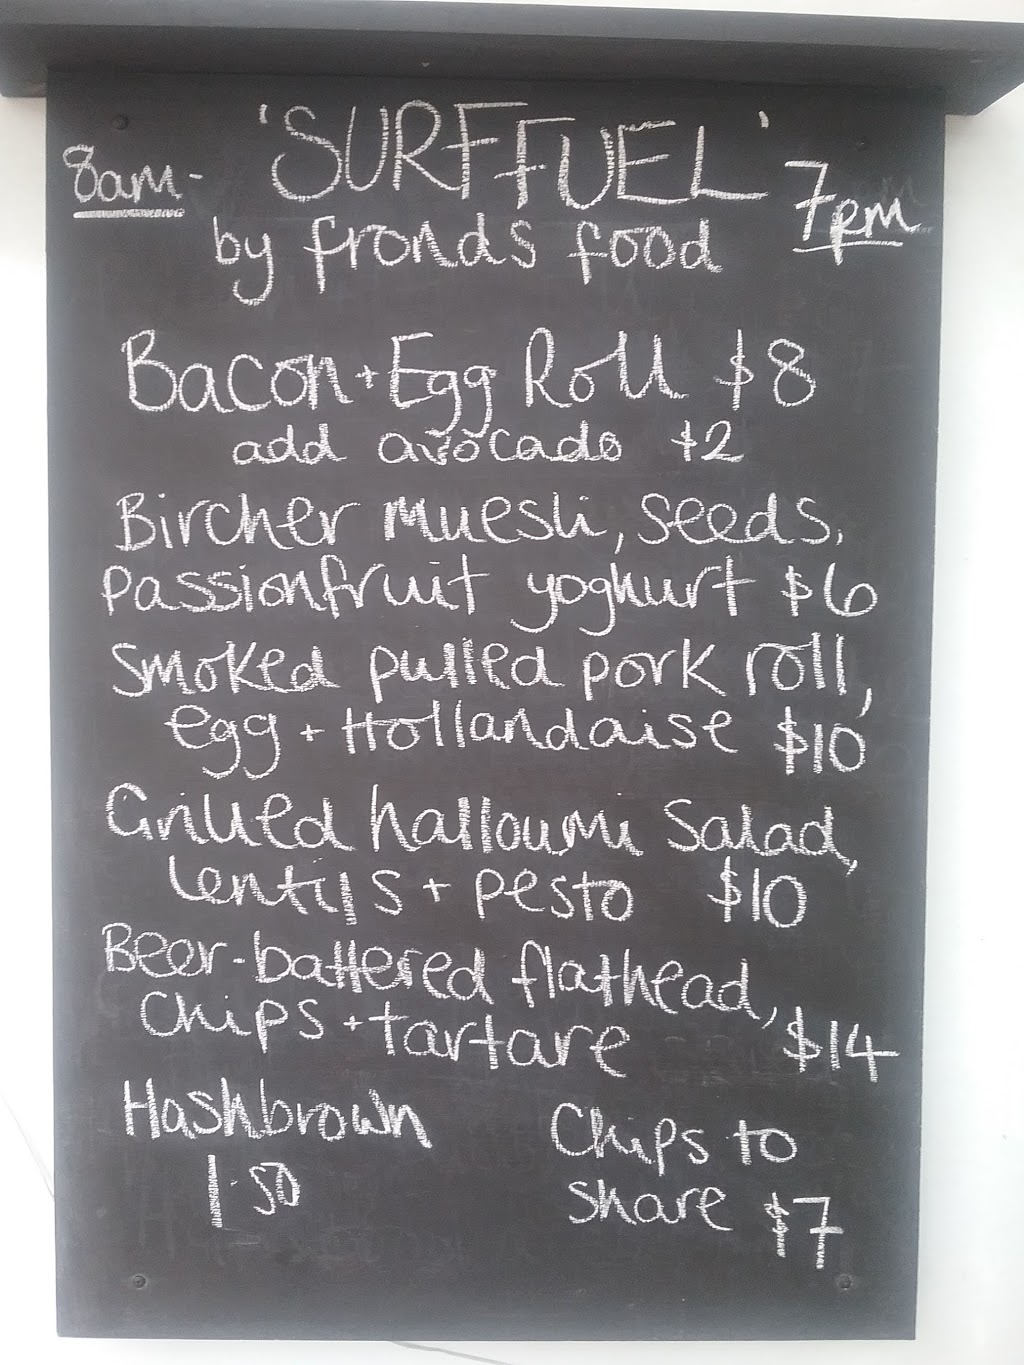 'SURFFUEL'
8am- 7pm
by fronds food
Bacon + Egg Roll $8
add avocado $2
Bircher muesli, seeds,
passionfruit yoghurt $6
Smoked pulled pork roll,
egg + Hollandaise $10
Grilled halloumi Salad,
lentils + pesto $10
Beer-battered flathead,
Chips + tartare $14
Hashbrown
1.50
Chips to
share $7